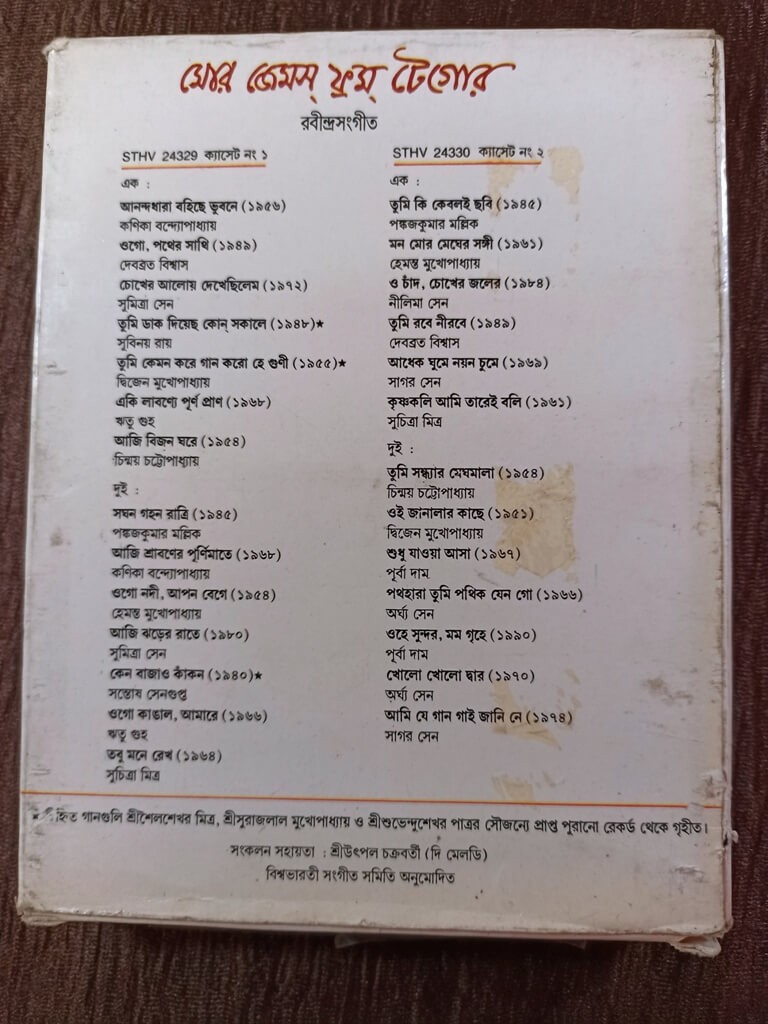 মোর জেমস্ ফ্রম্ টেগোর
রবীন্দ্রসংগীত
STHV 24329 ক্যাসেট নং ১
এক :
আনন্দধারা বহিছে ভুবনে (১৯৫৬)
কণিকা বন্দ্যোপাধ্যায়
ওগো, পথের সাথি (১৯৪৯)
দেবব্রত বিশ্বাস
চোখের আলোয় দেখেছিলেম (১৯৭২)
সুমিত্রা সেন
তুমি ডাক দিয়েছ কোন্ সকালে (১৯৪৮)★
সুবিনয় রায়
তুমি কেমন করে গান করো হে গুণী (১৯৫৫)★
দ্বিজেন মুখোপাধ্যায়
একি লাবণ্যে পূর্ণ প্রাণ (১৯৬৮)
ঋতু গুহ
আজি বিজন ঘরে (১৯৫৪)
চিন্ময় চট্টোপাধ্যায়
দুই :
সঘন গহন রাত্রি (১৯৪৫)
পঙ্কজকুমার মল্লিক
আজি শ্রাবণের পূর্ণিমাতে (১৯৬৮)
কণিকা বন্দ্যোপাধ্যায়
ওগো নদী, আপন বেগে (১৯৫৪)
হেমন্ত মুখোপাধ্যায়
আজি ঝড়ের রাতে (১৯৮০)
সুমিত্রা সেন
কেন বাজাও কাঁকন (১৯৪০)★
সন্তোষ সেনগুপ্ত
ওগো কাঙাল, আমারে (১৯৬৬)
ঋতু গুহ
তবু মনে রেখ (১৯৬৪)
সুচিত্রা মিত্র
STHV 24330 ক্যাসেট নং ২
এক :
তুমি কি কেবলই ছবি (১৯৪৫)
পঙ্কজকুমার মল্লিক
মন মোর মেঘের সঙ্গী (১৯৬১)
হেমন্ত মুখোপাধ্যায়
ও চাঁদ, চোখের জলের (১৯৮৪)
নীলিমা সেন
তুমি রবে নীরবে (১৯৪৯)
দেবব্রত বিশ্বাস
আধেক ঘুমে নয়ন চুমে (১৯৬৯)
সাগর সেন
কৃষ্ণকলি আমি তারেই বলি (১৯৬১)
সুচিত্রা মিত্র
দুই :
তুমি সন্ধ্যার মেঘমালা (১৯৫৪)
চিন্ময় চট্টোপাধ্যায়
ওই জানালার কাছে (১৯৫১)
দ্বিজেন মুখোপাধ্যায়
শুধু যাওয়া আসা (১৯৬৭)
পূর্বা দাম
পথহারা তুমি পথিক যেন গো (১৯৬৬)
অর্ঘ্য সেন
ওহে সুন্দর, মম গৃহে (১৯৯০)
পূর্বা দাম
খোলো খোলো দ্বার (১৯৭০)
অর্ঘ্য সেন
আমি যে গান গাই জানি নে (১৯৭৪)
সাগর সেন
★ গানগুলি শ্রীশৈলশেখর মিত্র, শ্রীসুরাজলাল মুখোপাধ্যায় ও শ্রীশুভেন্দুশেখর পাত্রর সৌজন্যে প্রাপ্ত পুরানো রেকর্ড থেকে গৃহীত।
সংকলন সহায়তা : শ্রীউৎপল চক্রবর্তী (দি মেলডি)
বিশ্বভারতী সংগীত সমিতি অনুমোদিত